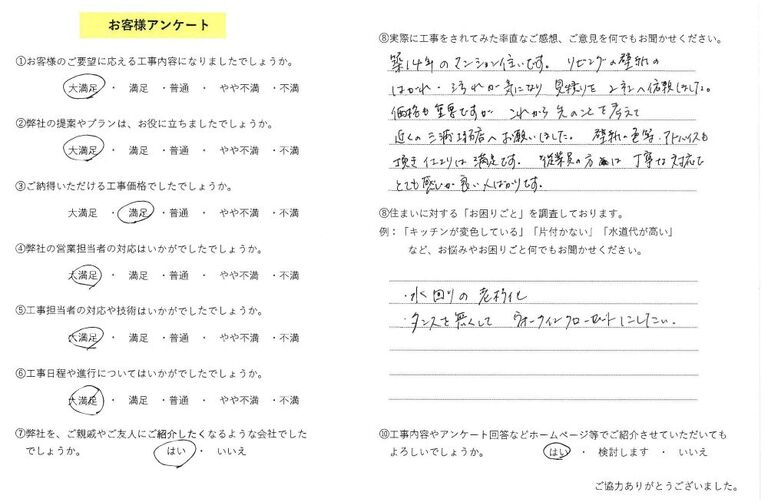 お客様アンケート
①お客様のご要望に応える工事内容になりましたでしょうか。
大満足 ・ 満足 ・普通 ・ やや不満 ・不満
②弊社の提案やプランは、お役に立ちましたでしょうか。
大満足 ・ 満足 ・普通 ・ やや不満 ・不満
③ご納得いただける工事価格でしたでしょうか。
大満足 ・ 満足 ・普通 ・ やや不満 ・不満
④弊社の営業担当者の対応はいかがでしたでしょうか。
大満足 ・ 満足 ・普通 ・ やや不満 ・不満
⑤工事担当者の対応や技術はいかがでしたでしょうか。
大満足 ・ 満足 ・普通 ・ やや不満 ・不満
⑥工事日程や進行についてはいかがでしたでしょうか。
大満足 ・ 満足 ・普通 ・ やや不満 ・不満
⑦弊社を、ご親戚やご友人にご紹介したくなるような会社でした
でしょうか。 はい ・ いいえ
⑧実際に工事をされてみた率直なご感想、ご意見を何でもお聞かせください。
築14年のマンション住いです。 リビングの壁紙の
はがれ・汚れが気になり 見積りを 2社へ依頼しました。
価格も重要ですが これから先のことを考えて
近くの へお願いしました。 壁紙の色等・アドバイスも
頂き 満足です。 従業員の方は 丁寧な対応で
とても感じが良い人ばかりです。
⑨住まいに対する「お困りごと」を調査しております。
例：「キッチンが変色している」「片付かない」「水道代が高い」
など、お悩みやお困りごと何でもお聞かせください。
・水回りの 老朽化
・タンスを無くして ウォークインクローゼットにしたい。
⑩工事内容やアンケート回答などホームページ等でご紹介させていただいても
よろしいでしょうか。 はい ・ 検討します ・ いいえ
ご協力ありがとうございました。